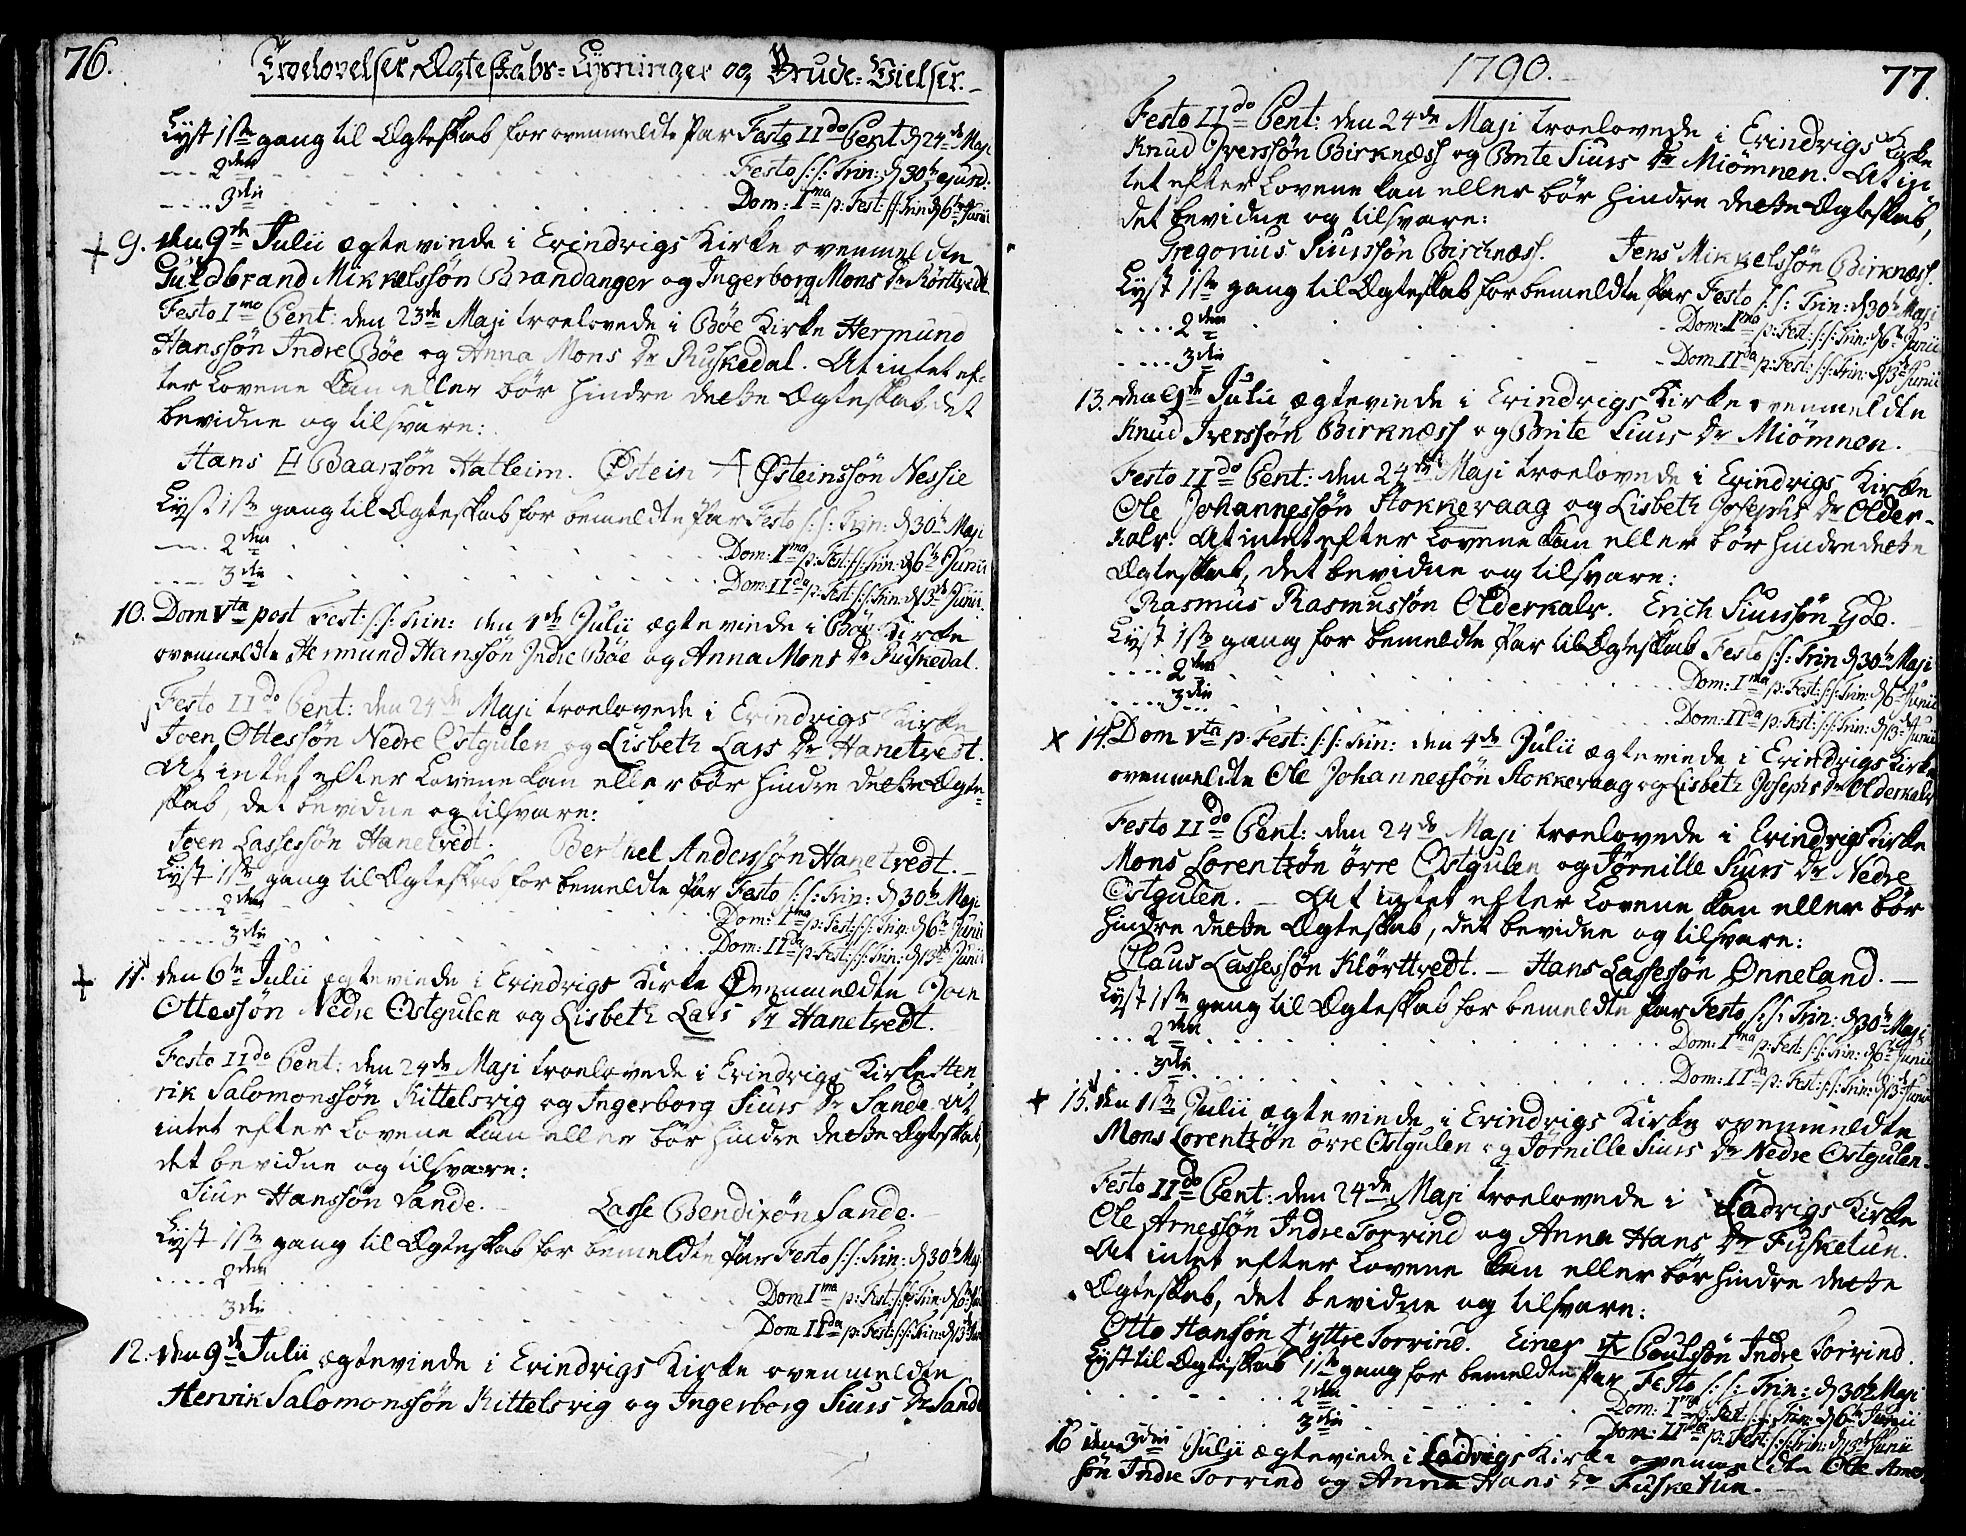 76.
Troelovelser, Ægteskabs=Lysninger og Brude=Vielser.
Lyst 1ste gang til Ægteskab for ovenmeldte Par Festo IIdo Pent d 24de Maji
---- 2den Festo s:s: Trin: d 30te ejusd:
---- 3die Dom: Ima p: Fest: s: Trin d 6te Junii
9. den 9de Julii ægteviede i Eindrigs Kirke ovenmeldte
Guldbrand Mikkelssøn Brandanger og Ingerborg Mons Dr Rörttvedt
Festo Imo Pent: den 23de Maji troelovede i Böe Kirke Hermund
Hanssøn Indre Böe og Anna Mons Dr Ruskedal. At intet ef-
ter Lovene kan eller bör hindre dette Ægteskab, det
bevidne og tilsvare:
Hans H Baarssøn Hatleim. Østein Østeinssøn Nessie
Lyst 1ste gang til Ægteskab for bemeldte Par Festo s:s: Trin: d 30te Maji
---- 2den Dom: Ima p: Fest: s:s: Trin: d 6te Junii
---- 3die Dom: IIda p: Fest: s:s: Trin: d 13de Junii.
10. Dom Vta post Fest: s:s: Trin: den 4de Julii ægteviede i Böe Kirke
ovenmeldte Hermund Hanssøn Indre Böe og Anna Mons Dr Ruskedal.
Festo IIdo Pent: den 24de Maji troelovede i Eindrigs Kirke
Joen Ottessøn Nedre Ostgulen og Lisbeth Lars Dr Hanetvedt.
At intet efter Lovene kan eller bör hindre dette Ægte-
skab, det bevidne og tilsvare:
Joen Lassessøn Hanetvedt. Berthel Anderssøn Hanetvedt.
Lyst 1ste gang til Ægteskab for bemeldte Par Festo s:s: Trin: d 30te Maji
---- 2den Dom: Ima p: Fest: s:s: Trin: d 6te Junii
---- 3die Dom: IIda p: Fest: s:s: Trin: d 13de Junii
11. den 6te Julii ægteviede i Eindrigs Kirke Ovenmeldte Joen
Ottessøn Nedre Ostgulen og Lisbeth Lars Dr Hanetvedt.
Festo IIdo Pent: den 24de Maji troelovede i Eindrigs Kirke Hen
rik Salomonssøn Kittelsvig og Ingerborg Siurs Dr Sande. At
intet efter Lovene kan eller bör hindre dette Ægteskab,
det bevidne og tilsvare:
Siur Hanssøn Sande. Lasse Bendixøn Sande.
Lyst 1ste gang til Ægteskab for bemeldte Par Festo s:s: Trin: d 30te Maj
---- 2den Dom Ima p: Fest: s:s: Trin d 6te Jun
---- 3die Dom IIda p: Fest: s:s: Trin: d 13de Jun
12. den 9de Julii ægteviede i Eindrigs Kirke ovenmeldte
Henrik Salomonssøn Kittelsvig og Ingerborg Siurs Dr Sande
1790.
77.
Festo IIdo Pent: den 24de Maji troelovede i Eindrigs Kirke
Knud Iverssøn Birknæss og Brite Siurs Dr Miömnen. At in
tet efter Lovene kan eller bör hindre dette Ægteskab,
det bevidne og tilsvare:
Gregorius Siurssøn Birchnæss. Jens Mikkelssøn Birknæss.
Lyst 1ste gang til Ægteskab for bemeldte Par Festo s:s: Trin: d 30te Maji
---- 2den Dom: Ima p: Fest: s:s: Trin: d 6te Junii
---- 3die Dom IIda p: Fest: s:s: Trin: d 13de Junii
13. den 9de Julii ægteviede i Eindrigs Kirke ovenmeldte
Knud Iverssøn Birknæss og Brite Siurs Dr Miömnen.
Festo IIdo Pent: den 24de Maji troelovede i Eindrigs Kirke
Ole Johannessøn Stokkeraag og Lisbeth Josephs Dr Older-
kalv. At intet efter Lovene kan eller bör hindre dette
Ægteskab, det bevidne og tilsvare:
Rasmus Rasmussøn Olderkalv. Erich Siurssøn Ede.
Lyst 1ste gang for bemeldte Par til Ægteskab Festo s:s: Trin d 30te Maji
---- 2den Dom: Ima p: Fest: s:s: Trin: d 6te Junii
---- 3die Dom: IIda p: Fest: s:s: Trin: d 13de Junii
14. Dom Vta p: Fest: s:s: Trin: den 4de Julii ægteviede i Eindrigs Kirke
ovenmeldte Ole Johannessøn Stokkeraag og Lisbeth Josephs Dr Olderkalv
Festo IIdo Pent: den 24de Maji troelovede i Eindrigs Kirke
Mons Lorentzøn örre Ostgulen og Törnille Siurs Dr Nedre
Ostgulen. - At intet efter Lovene kan eller bör
hindre dette Ægteskab, det bevidne og tilsvare:
Claus Lassessøn Klörttvedt. - Hans Lassessøn Ønneland. -
Lyst 1ste gang til Ægteskab for bemeldte Par Festo s:s: Trin: d 30te Maji
---- 2den Dom: Ima p: Fest: s:s: Trin: d 6te Junii
---- 3die Dom: IIda p: Fest: s:s: Trin: d 13de Junii
15. den 11te Julii ægteviede i Eindrigs Kirke ovenmeldte
Mons Lorentzøn örre Ostgulen og Törnille Siurs Dr Nedre Ostgulen.
Festo IIdo Pent: den 24de Maji troelovede i Ladvigs Kirke
Ole Arnessøn Indre Torvind og Anna Hans Dr Fusketun.
At intet efter Lovene kan eller bör hindre dette
Ægteskab, det bevidne og tilsvare:
Otto Hansøn Yttre Torvind. Einer Poulssøn Indre Torvind.
Lyst til Ægteskab 1ste gang for bemeldte Par Festo s:s: Trin: d 30te Maji
---- 2den Dom: Ima p: Fest: s:s: Trin: d 6te Junii
---- 3die Dom: IIda p: Fest: s:s: Trin: d 13de Junii
16 den 3die Julii ægteviede i Ladvigs Kirke ovenmeldte Ole Arnes
søn Indre Torvind og Anna Hans Dr Fusketun.